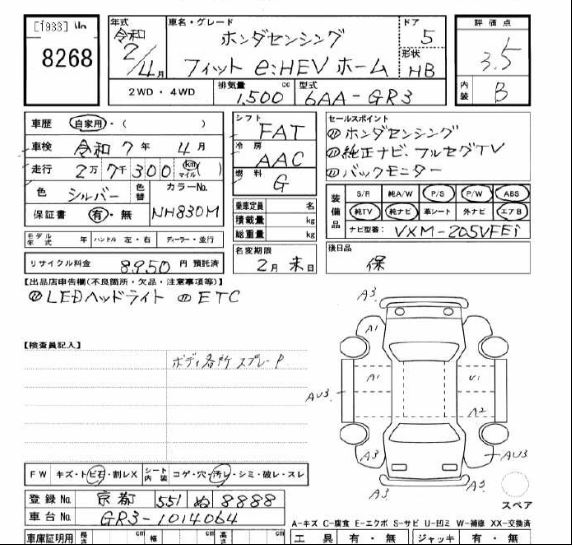 [1933] No.
8268
年式 車名・グレード ドア 評価点
令和 ホンダセンシング 5 3.5
2/4月 フィット e:HEV ホーム 形状 HB
2WD・4WD 排気量 1,500 cc 型式 6AA-GR3 内装 B
車歴 自家用・( )
シフト FAT
セールスポイント
車検 令和 7年 4月
冷房 AAC
①ホンダセンシング
走行 2万7千300 km マイル
②純正ナビ、フルセグTV
色 シルバー 色替 カラーNo.
燃料 G
③バックモニター
保証書 有・無 NH830M
乗車定員 名
積載量 kg
総重量 kg
装備品 S/R 純A/W P/S P/W ABS
純TV 純ナビ 革シート 外ナビ エアB
ナビ型番: VXM-205VFEi
モデル年式 年 ハンドル 左・右 ディーラー・並行
名変期限 2月末日
後日品 保
リサイクル料金 8,950 円 預託済
【出品店申告欄(不良箇所・欠品・注意事項等)】
④LEDヘッドライト ⑤ETC
【検査員記入】
ボディ各所 スプレーP
A3
A1
A1 U1
AU3 A2
A3 AU3
A3 A3
スペア
FW キズ・トビ石・割レX シート内装 コゲ・穴・汚レ・シミ・破レ・スレ
登録No. 京都 551 ぬ 8888
車台No. GR3-1014064
A-キズ C-腐食 E-エクボ S-サビ U-凹ミ W-補修 XX-交換済
車庫証明用 長さ cm 幅 cm 高さ cm 工具 有・無 ジャッキ 有・無